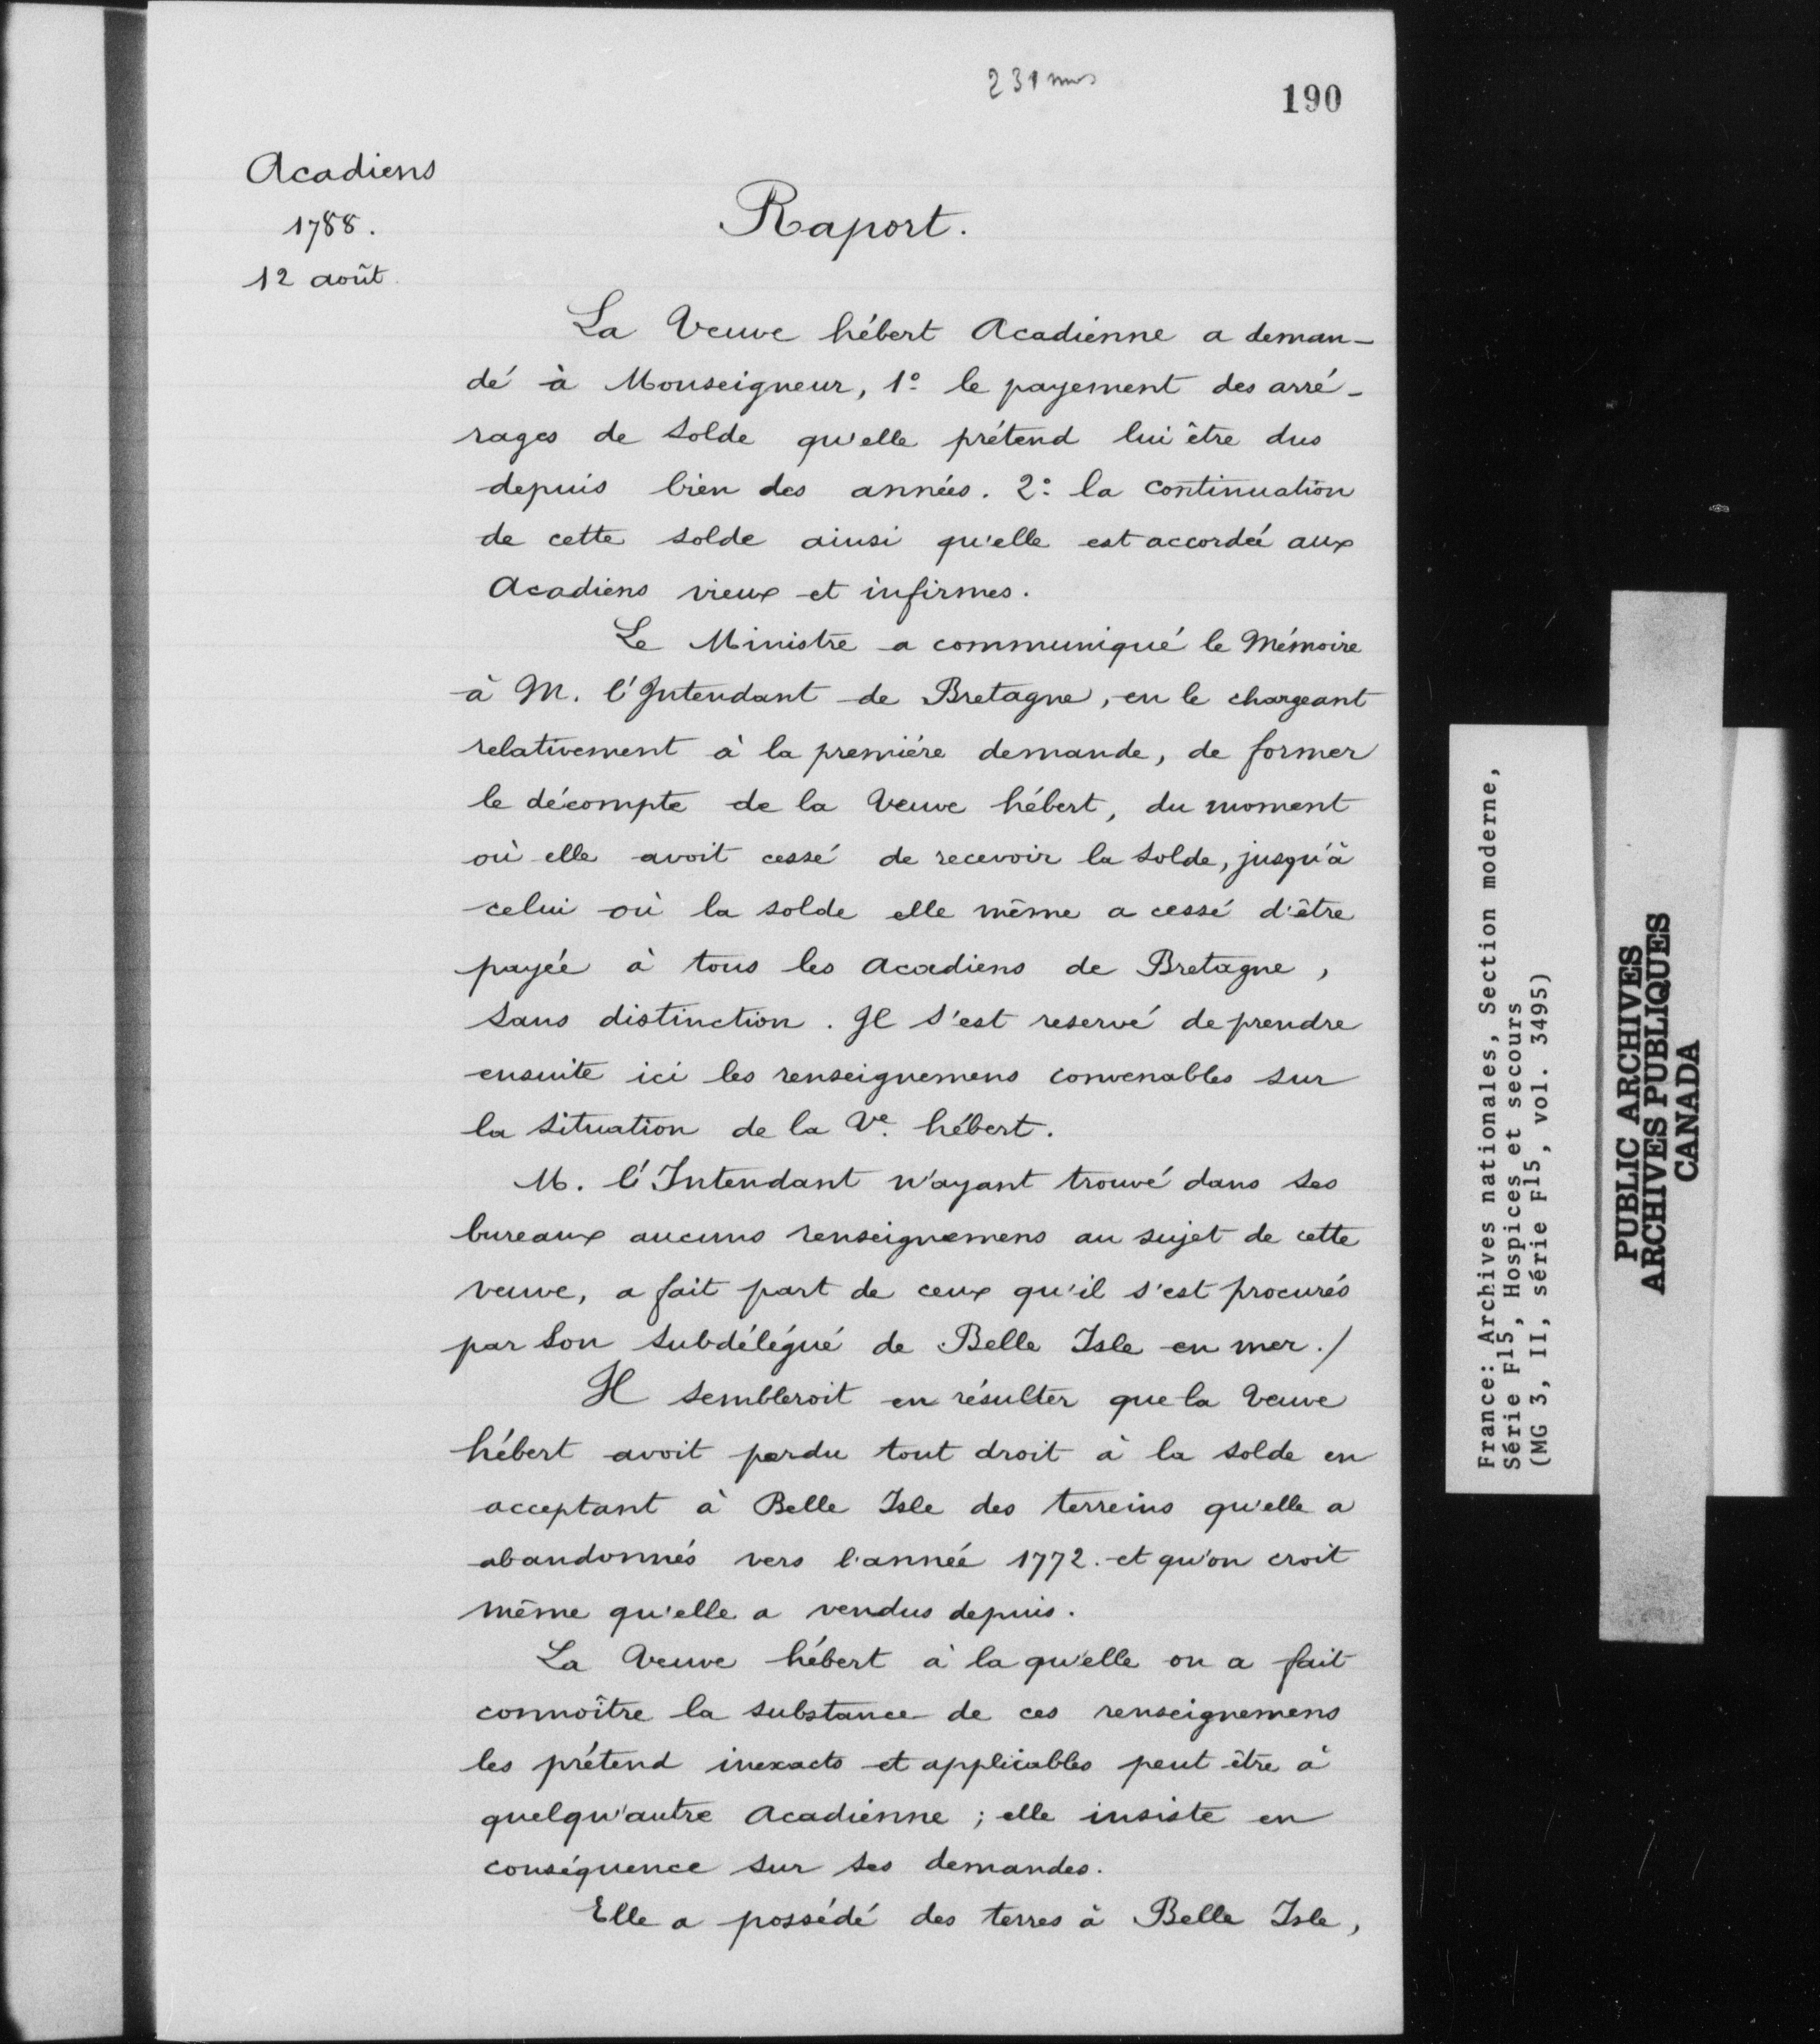 190
Acadiens
1788.
12 août.
Raport.
La Veuve hébert Acadiénne a deman-
dé à Monseigneur, 1º le payement des arré-
rages de solde qu'elle prétend lui être dus
depuis bien des années. 2º la continuation
de cette solde ainsi qu'elle est accordée aux
Acadiens vieux et infirmes.
Le Ministre a communiqué le Mémoire
à M. l'Intendant de Bretagne, en le chargeant
relativement à la premiére demande, de former
le décompte de la Veuve hébert, du moment
où elle avoit cessé de recevoir la solde, jusqu'à
celui où la solde elle même a cessé d'être
payée à tous les Acadiens de Bretagne,
sans distinction. Il s'est reservé de prendre
ensuite ici les renseignemens convenables sur
la situation de la Ve. hébert.
M. l'Intendant n'ayant trouvé dans ses
bureaux aucuns renseignemens au sujet de cette
veuve, a fait part de ceux qu'il s'est procurés
par son subdélégué de Belle Isle en mer./
Il sembleroit en résulter que la Veuve
hébert avoit perdu tout droit à la solde en
acceptant à Belle Isle des terreins qu'elle a
abandonnés vers l'année 1772. et qu'on croit
même qu'elle a vendus depuis.
La Veuve hébert à la qu'elle on a fait
connoître la substance de ces renseignemens
les prétend inexacts et applicables peut être à
quelqu'autre Acadiénne ; elle insiste en
conséquence sur ses demandes.
Elle a possédé des terres à Belle Isle,
France: Archives nationales, Section moderne,
Série F15, Hospices et secours
(MG 3, II, série F15, vol. 3495)
PUBLIC ARCHIVES
ARCHIVES PUBLIQUES
CANADA